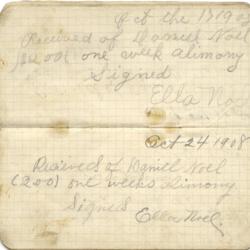 Oct the 17 19
Received of Daniel Noel
one week alimony
Signed
Ella No
Oct 24 1908
Recieved of Daniel Noel
(2.00) one weeks alimony
Signed
Ella Noel